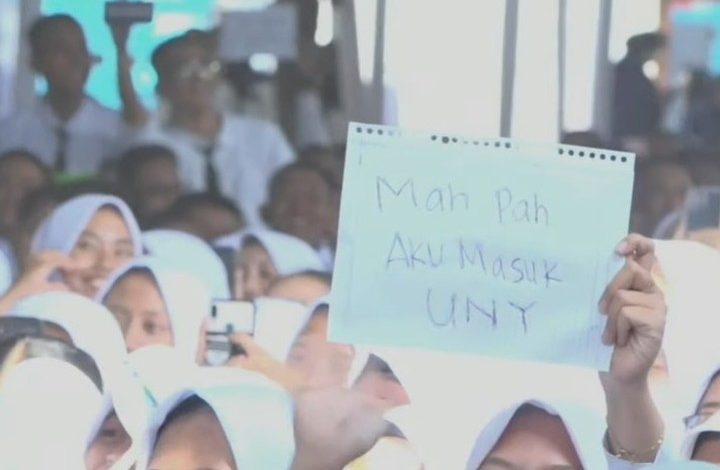 Mah Pah
AKU Masuk
UNY